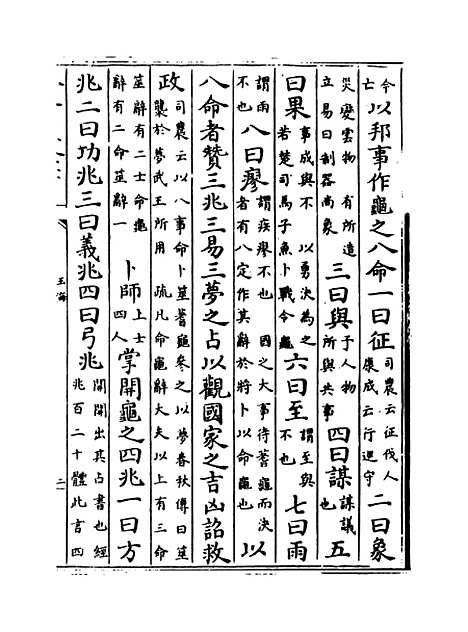 今亡以邦事作龜之八命一曰征司農云征伐人康成云行巡守二曰象
災變雲物 有所造立易曰制器尚象三曰與予人物所與共事四曰謀謀議也五
曰果事成與不 以勇決為之若楚司馬子魚卜戰令龜六曰至謂至與不也七曰雨
謂雨不也八曰瘳謂疾瘳不也 國之大事待蓍龜而決者有八定作其辭於將卜以命龜也以
八命者贊三兆三易三夢之占以觀國家之吉凶詔救
政司農云以八事命卜筮蓍龜參之以夢春秋傳曰筮襲於夢武王所用 疏凡命龜辭大夫以上有三命
筮辭有二士命龜辭有二命筮辭一 卜師上士四人掌開龜之四兆一曰方
兆二曰功兆三曰義兆四曰弓兆開開出其占書也經兆百二十體此言四
玉海
二